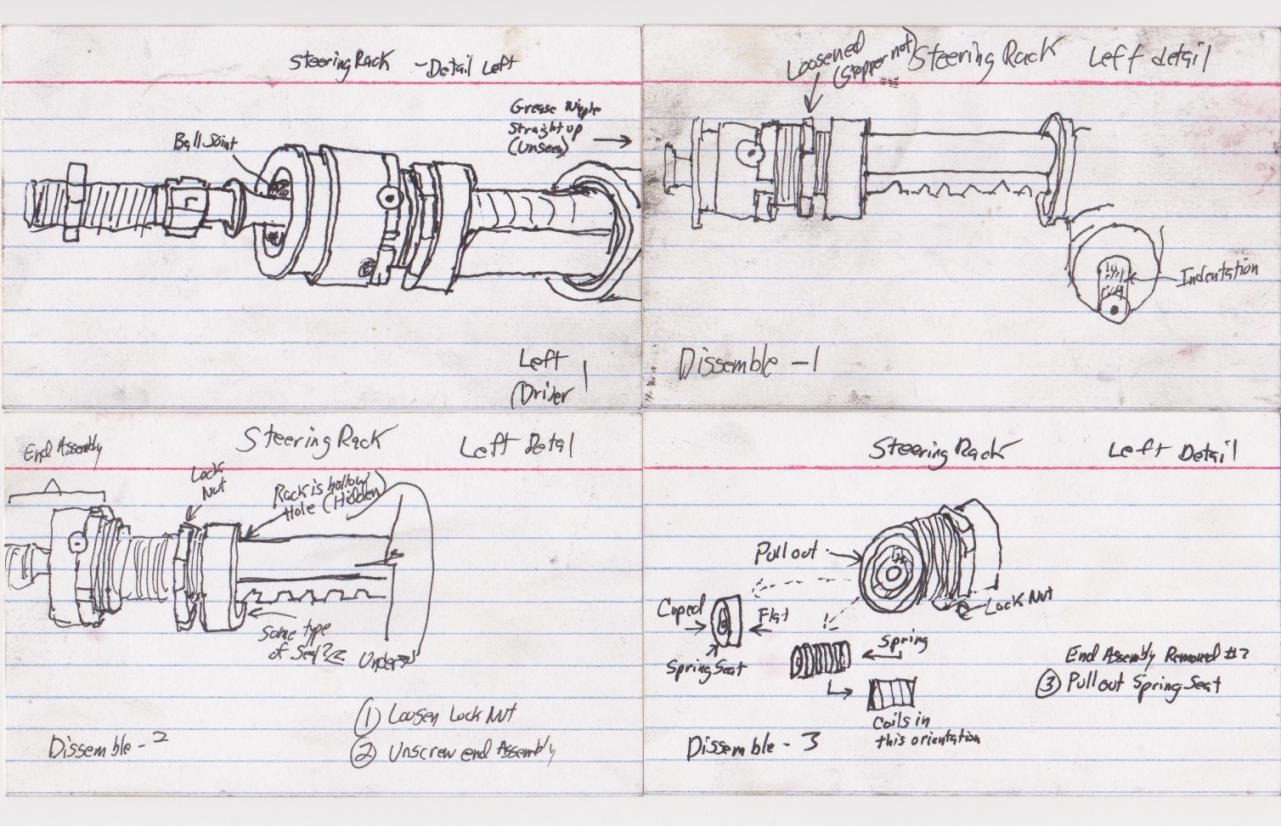 Steering Rack - Detail Left
Grease Nipple
Straight up
(Unseen)
Ball Joint
Left
Driver
1
Steering Rack Left detail
Loosened
(Stepper not)
Indentation
Dissemble -1
Steering Rack Left Detal
End Assembly
Lock
Nut
Rack is hollow
Hole (Hidden)
Some type
of Seal??
Under
① Loosen Lock Nut
② Unscrew end Assembly
Dissemble - 2
Steering Rack Left Detail
Pull out
Lock Nut
Cuped
Flat
Spring Seat
Spring
Coils in
this orientation
End Assembly Removed #2
③ Pull out Spring Seat
Dissemble - 3